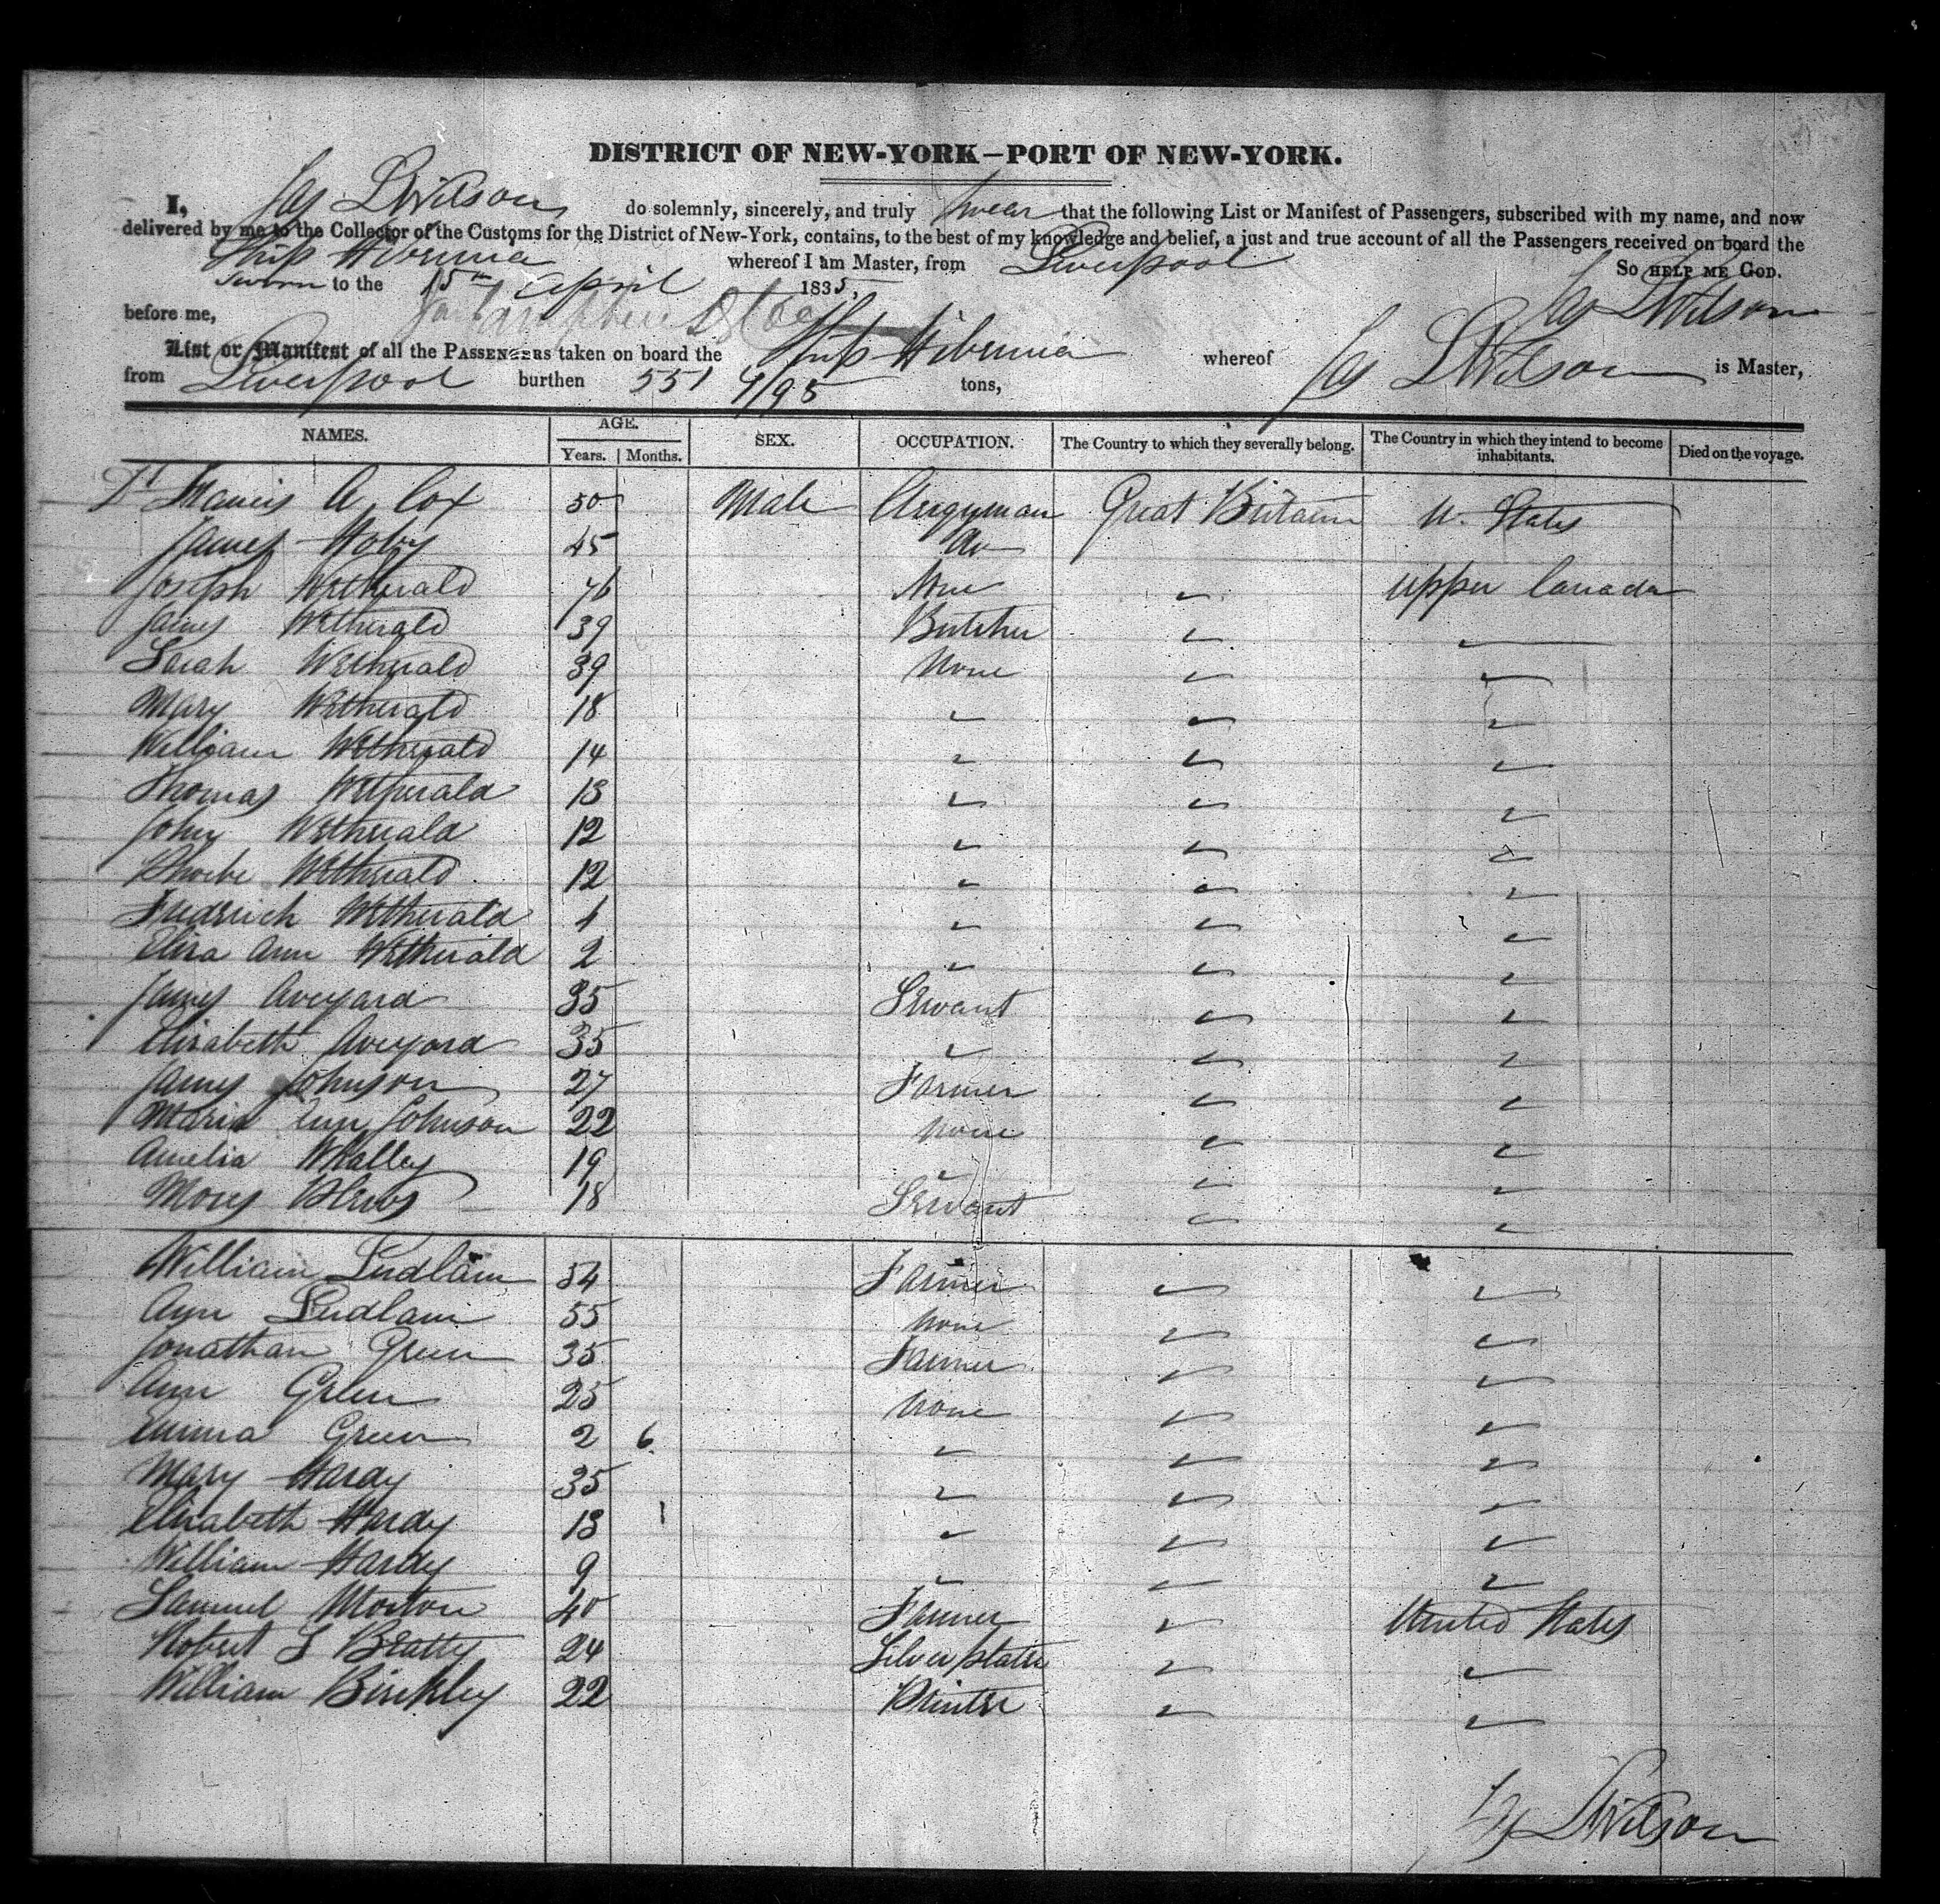 DISTRICT OF NEW-YORK–PORT OF NEW-YORK.
I, Jas L Wilson do solemnly, sincerely, and truly swear that the following List or Manifest of Passengers, subscribed with my name, and now
delivered by me to the Collector of the Customs for the District of New-York, contains, to the best of my knowledge and belief, a just and true account of all the Passengers received on board the
Ship Hibernia whereof I am Master, from Liverpool So HELP ME GOD.
Sworn to the 15th April 1835, Jas L Wilson
before me,
List or Manifest of all the PASSENGERS taken on board the Ship Hibernia whereof Jas L Wilson is Master,
from Liverpool burthen 551 4/95 tons,
NAMES. AGE. Years. Months. SEX. OCCUPATION. The Country to which they severally belong. The Country in which they intend to become inhabitants. Died on the voyage.
Francis A Cox 50 Male Clergyman Great Britain U. States
James Hoby 45 do
Joseph Wetherald 76 None " Upper Canada
James Wetherald 39 Butcher " "
Sarah Wetherald 39 None " "
Mary Wetherald 18 " " "
William Wetherald 14 " " "
Thomas Wetherald 13 " " "
John Wetherald 12 " " "
Phoebe Wetherald 12 " " "
Fredrich Wetherald 4 " " "
Eliza Ann Wetherald 2 " " "
James Aveyard 35 Servant " "
Elizabeth Aveyard 35 " " "
James Johnson 27 Farmer " "
Maria Ann Johnson 22 None " "
Amelia Whalley 19 " " "
Moses Blews 18 Servant " "
William Ludlam 54 Farmer " "
Ann Ludlam 55 None " "
Jonathan Green 35 Farmer " "
Ann Green 25 None " "
Emma Green 2 6 " " "
Mary Hardy 35 " " "
Elizabeth Hardy 13 " " "
William Hardy 9 " " "
Samuel Morton 40 Farmer " United States
Robert S Beatty 24 Silver plater " "
William Binkley 22 Printer " "
Jas L Wilson